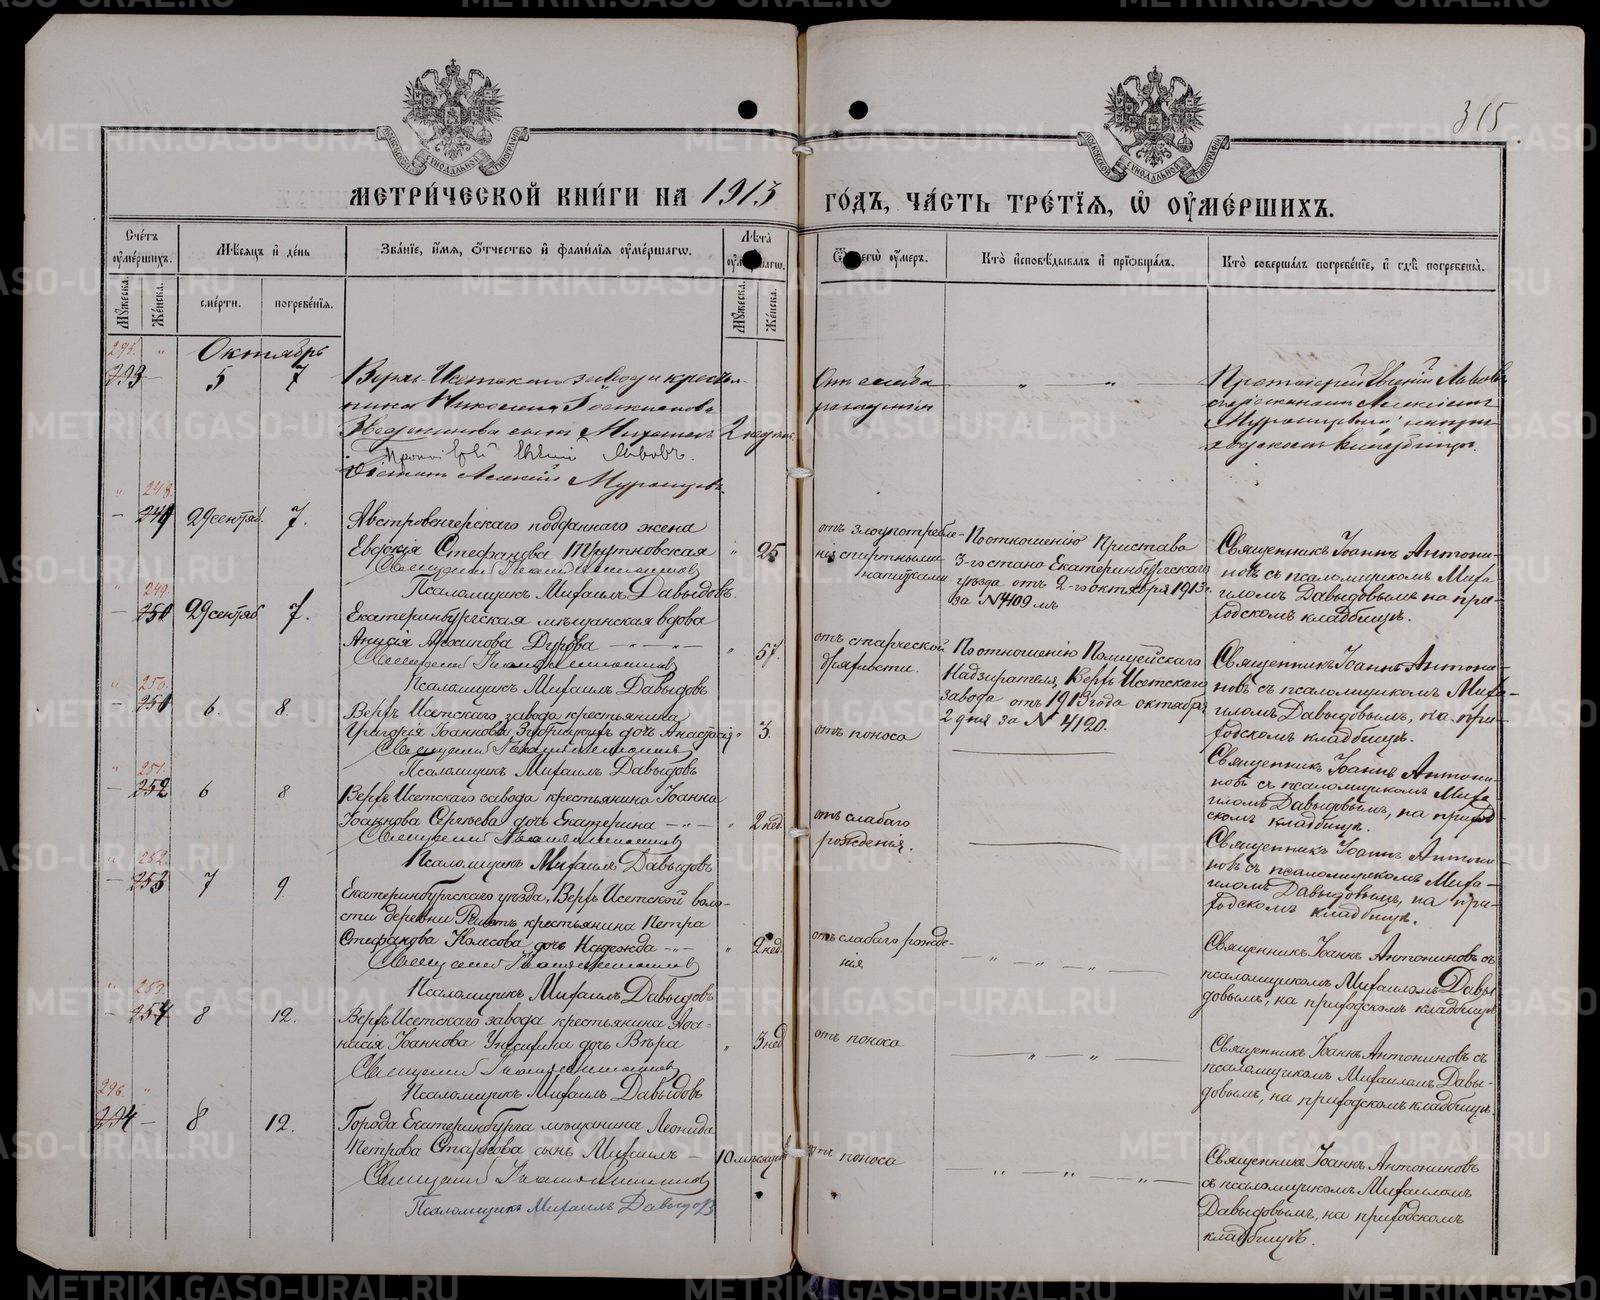 315
МЕТРИ́ЧЕСКОЙ КНИ́ГИ НА 1913 ГО́ДЪ, ЧА́СТЬ ТРЕ́ТІЯ, Ѡ҆ ОУ҆МЕ́РШИХЪ.
Сче́тъ оу҆ме́ршихъ.
Мѣ́сяцъ и҆ де́нь
Зва́ніе, и҆́мя, ѻ҆́тчество и҆ фами́лія оу҆ме́ршагѡ.
Лѣ́та
Кто̀ и҆сповѣ́дывалъ и҆ пріѡбща́лъ.
Кто̀ соверша́лъ погребе́ніе, и҆ гдѣ̀ погребены̀.
Му́жеска.
Же́нска.
сме́рти.
погребе́нія.
Му́жеска.
Же́нска.
295.
Октябрь
293 — 5 7
Верхъ-Исетскаго завода крестья-
нина Николая
сынъ Михаилъ 2 недѣли
Протоіерей Евгеній Львовъ.
Алексій
Отъ слабаго
рожденія
Протоіерей Евгеній Львовъ
248.
— 29 сентяб. 7.
Австровенгерскаго подданнаго жена
Евдокія Стефанова Трутновская " 25
Священникъ Іоаннъ Антониновъ
Псаломщикъ Михаилъ Давыдовъ.
отъ злоупотребле-
нія спиртными
напитками
По отношенію Пристава
3-го стана Екатеринбургскаго
уѣзда отъ 2-го октября 1913 г.
за № 4109 мъ
Священникъ Іоаннъ Антони-
новъ съ псаломщикомъ Миха-
иломъ Давыдовымъ на при-
ходскомъ кладбищѣ.
249.
— 29 сентяб 7.
Екатеринбургская мѣщанская вдова
Анисія Архипова Дурова — " — " — " 57.
Священникъ Іоаннъ Антониновъ
Псаломщикъ Михаилъ Давыдовъ
отъ старческой
дряхлости.
По отношенію Полицейскаго
Надзирателя, Верхъ Исетскаго
завода отъ 1913 года октября
2 дня за № 4120.
Священникъ Іоаннъ Антони-
новъ съ псаломщикомъ Миха-
иломъ Давыдовымъ, на при-
ходскомъ кладбищѣ.
250.
— 251 6. 8.
Верхъ Исетскаго завода крестьянина
Григорія Іоаннова дочь Анастасія " 3.
Священникъ Іоаннъ Антониновъ
Псаломщикъ Михаилъ Давыдовъ
отъ поноса
Священникъ Іоаннъ Антони-
новъ съ псаломщикомъ Миха-
иломъ Давыдовымъ, на приход-
скомъ кладбищѣ.
251.
— 252 6 8
Верхъ Исетскаго завода крестьянина Іоанна
Іоаннова Сергѣева дочь Екатерина — " — " 2 нед.
Священникъ Іоаннъ Антониновъ
Псаломщикъ Михаилъ Давыдовъ
отъ слабаго
рожденія.
Священникъ Іоаннъ Антони-
новъ съ псаломщикомъ Миха-
иломъ Давыдовымъ, на при-
ходскомъ кладбищѣ.
252.
— 253 7 9
Екатеринбургскаго уѣзда, Верхъ Исетской воло-
сти деревни Рѣшетъ крестьянина Петра
Стефанова Колесова дочь Надежда — " — " 2 нед.
Священникъ Іоаннъ Антониновъ
Псаломщикъ Михаилъ Давыдовъ
отъ слабаго рожде-
нія
— " — " — " —
Священникъ Іоаннъ Антониновъ съ
псаломщикомъ Михаиломъ Давы
довымъ, на приходскомъ кладбищѣ
253.
— 254 8 12.
Верхъ Исетскаго завода крестьянина Афа-
насія Іоаннова дочь Вѣра " 3 нед
Священникъ Іоаннъ Антониновъ
Псаломщикъ Михаилъ Давыдовъ
отъ поноса
" — " —
Священникъ Іоаннъ Антониновъ съ
псаломщикомъ Михаиломъ Давы-
довымъ, на приходскомъ кладбищѣ.
296.
294 — 8 12.
Города Екатеринбурга мѣщанина Леонида
Петрова Старкова сынъ Михаилъ — 10 мѣсяцевъ
Священникъ Іоаннъ Антониновъ
Псаломщикъ Михаилъ Давыдовъ
отъ поноса
— " — " — " —
Священникъ Іоаннъ Антониновъ
съ псаломщикомъ Михаиломъ
Давыдовымъ, на приходскомъ
кладбищѣ.
METRIKI.GASO-URAL.RU